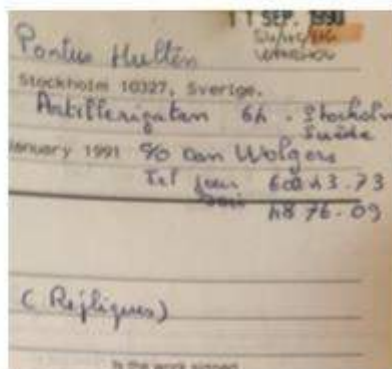 11 SEP. 1990
Pontus Hulten
Stockholm 10327, Sverige.
Artillerigatan 64. Stockholm
Suède
January 1991 c/o Dan Wolgers
Tel jour 600 43.73
48 76.09
(Répliques)
Is the work signed